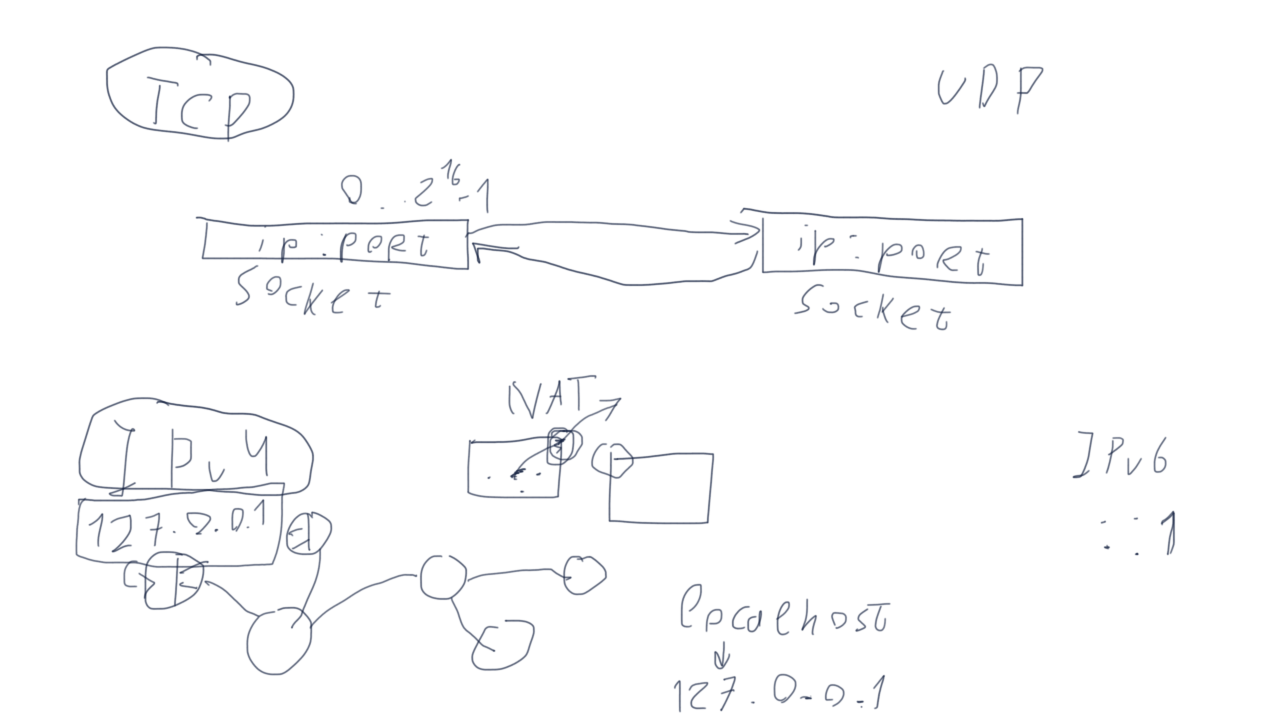 TCP
UDP
0..2^16-1
ip:port
ip:port
Socket
Socket
NAT
IPv4
127.0.0.1
IPv6
::1
localhost
127.0.0.1